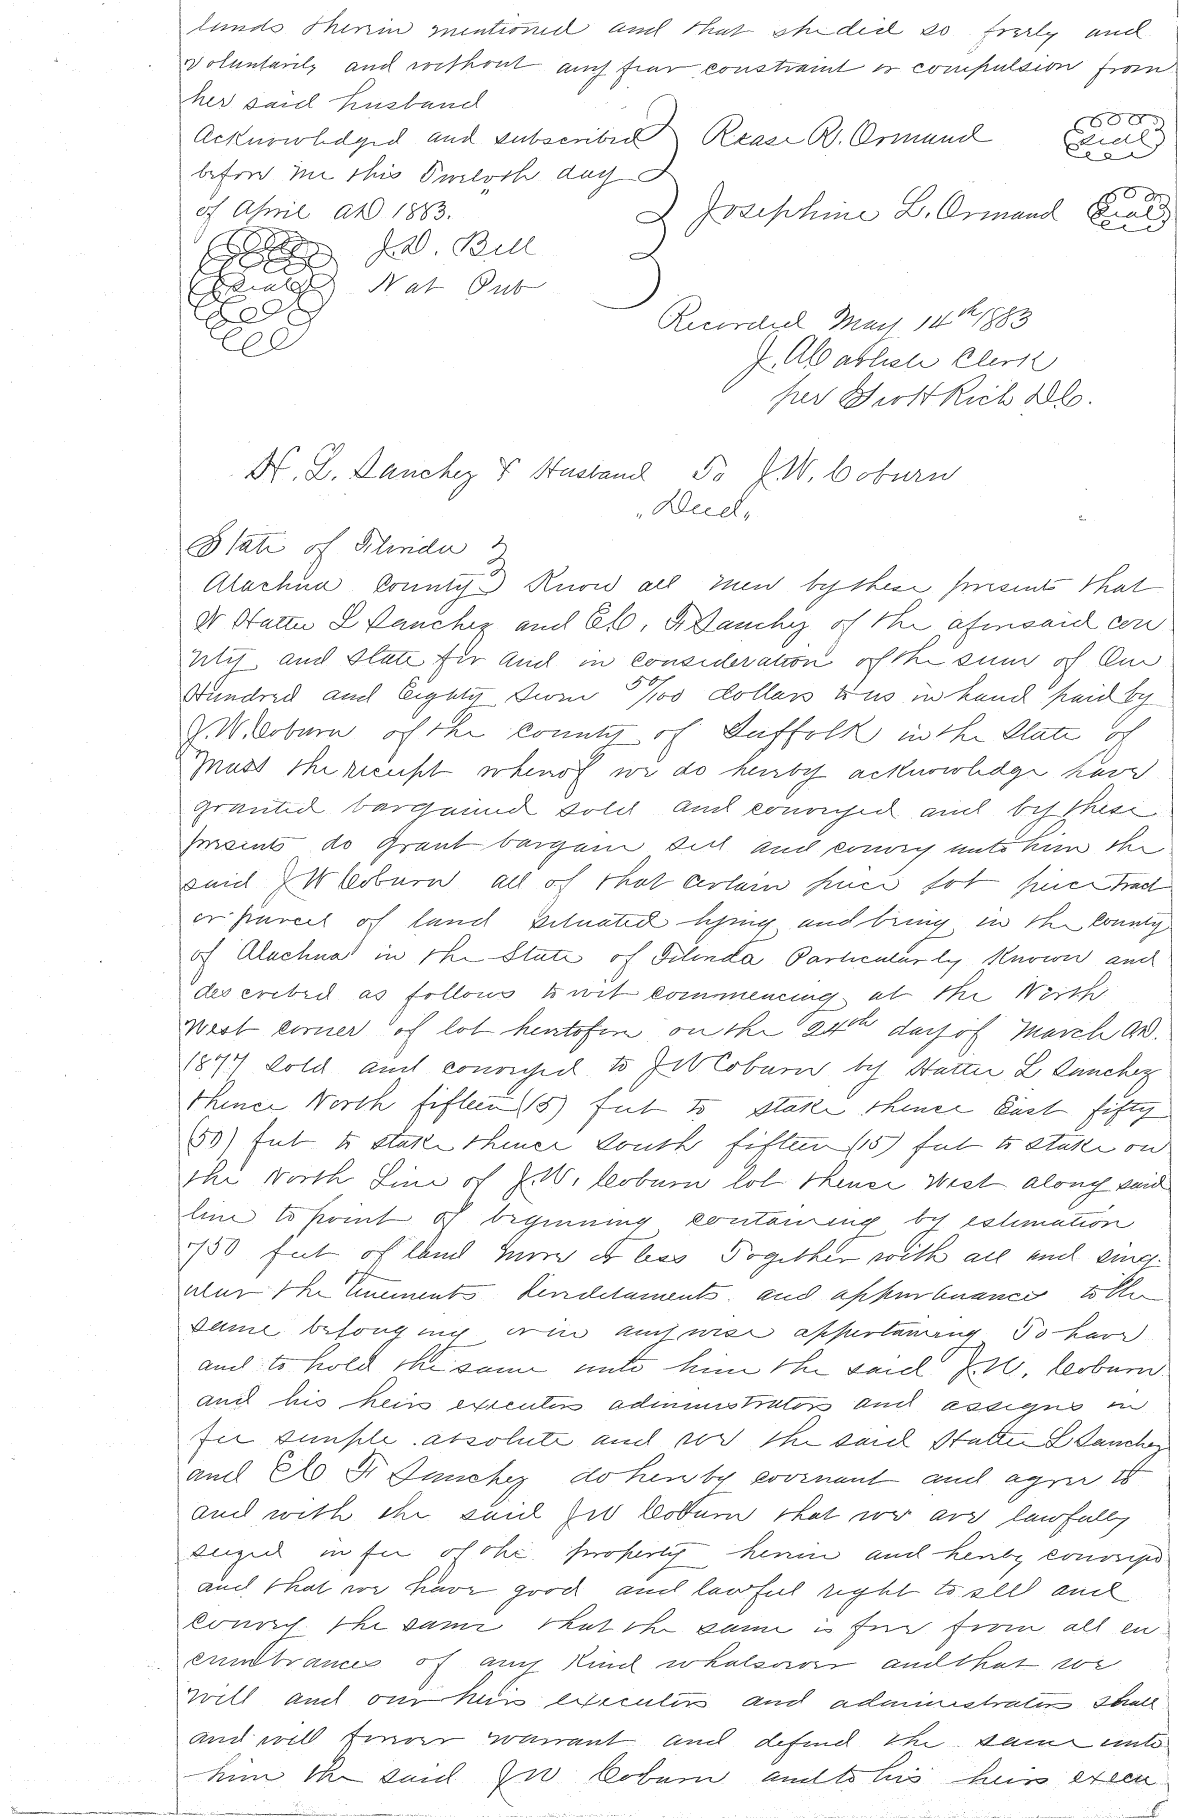 lands therein mentioned and that she did so freely and
voluntarily and without any fear constraint or compulsion from
her said husband
Acknowledged and subscribed Rease R. Ormand Seal
before me this Twelvth day
of April AD 1883. Josephine L. Ormand Seal
J.D. Bell
Seal Nat Pub
Recorded May 14th 1883
J. A. Carlisle Clerk
per Scott Rich D.C.
H. L. Sanchez & Husband To J.W. Coburn
"Deed"
State of Florida
Alachua County Know all men by these presents that
W Hattie L Sanchez and E.C. F. Sanchez of the aforesaid cou
nty and State for and in consideration of the sum of One
Hundred and Eighty Seven 50/100 dollars to us in hand paid by
J.W. Coburn of the county of Suffolk in the State of
Mass the receipt whereof we do hereby acknowledge have
granted bargained sold and conveyed and by these
presents do grant bargain sell and convey unto him the
said J W Coburn all of that certain piece lot piece tract
or parcel of land situated lying and being in the county
of Alachua in the State of Florida Particularly Known and
described as follows to wit commencing at the North
West corner of lot heretofore on the 24th day of March AD.
1877 sold and conveyed to J W Coburn by Hattie L Sanchez
thence North fifteen (15) feet to stake thence East fifty
(50) feet to stake thence South fifteen (15) feet to stake on
the North Line of J.W. Coburn lot thence West along said
line to point of beginning containing by estimation
750 feet of land more or less Together with all and sing-
ular the tenements heriditaments and appurtenances to the
same belonging or in anywise appertaining To have
and to hold the same unto him the said J.W. Coburn
and his heirs executors administrators and assigns in
fee simple absolute and we the said Hattie L Sanchez
and E C F. Sanchez do hereby covenant and agree to
and with the said J W Coburn that we are lawfully
seized in fee of the property herein and hereby conveyed
and that we have good and lawful right to sell and
convey the same that the same is free from all en
cumbrances of any Kind whatsoever and that we
will and our heirs executors and administrators shall
and will forever warrant and defend the same unto
him the said J W Coburn and to his heirs execu